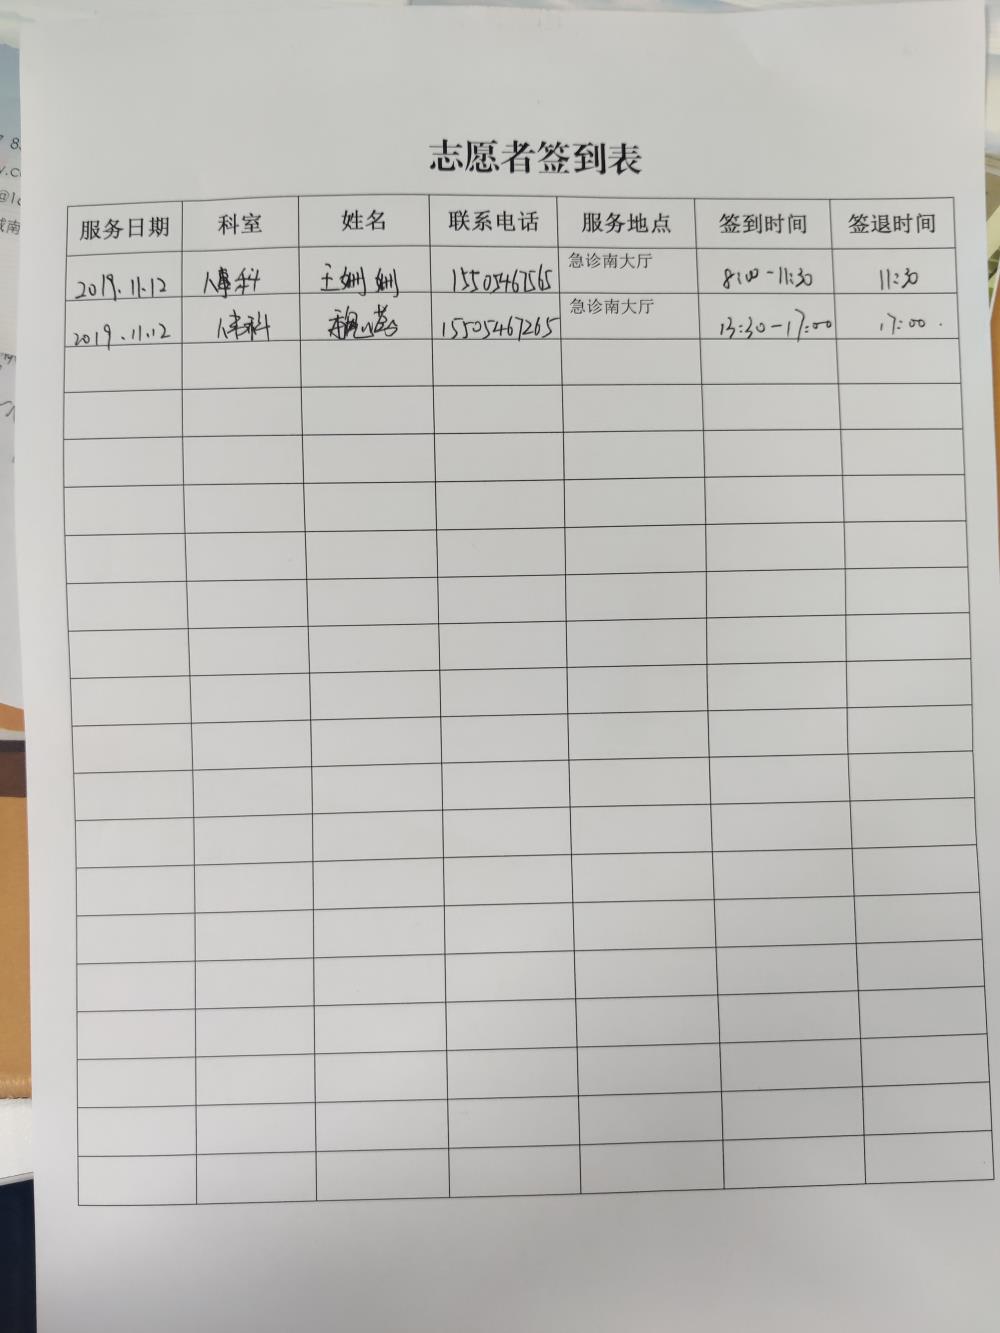 志愿者签到表
服务日期 科室 姓名 联系电话 服务地点 签到时间 签退时间
2019.11.12 人事科 王姗姗 15505467565 急诊南大厅 8:00-11:30 11:30
2019.11.12 人事科 15505467265 急诊南大厅 13:30-17:00 17:00.